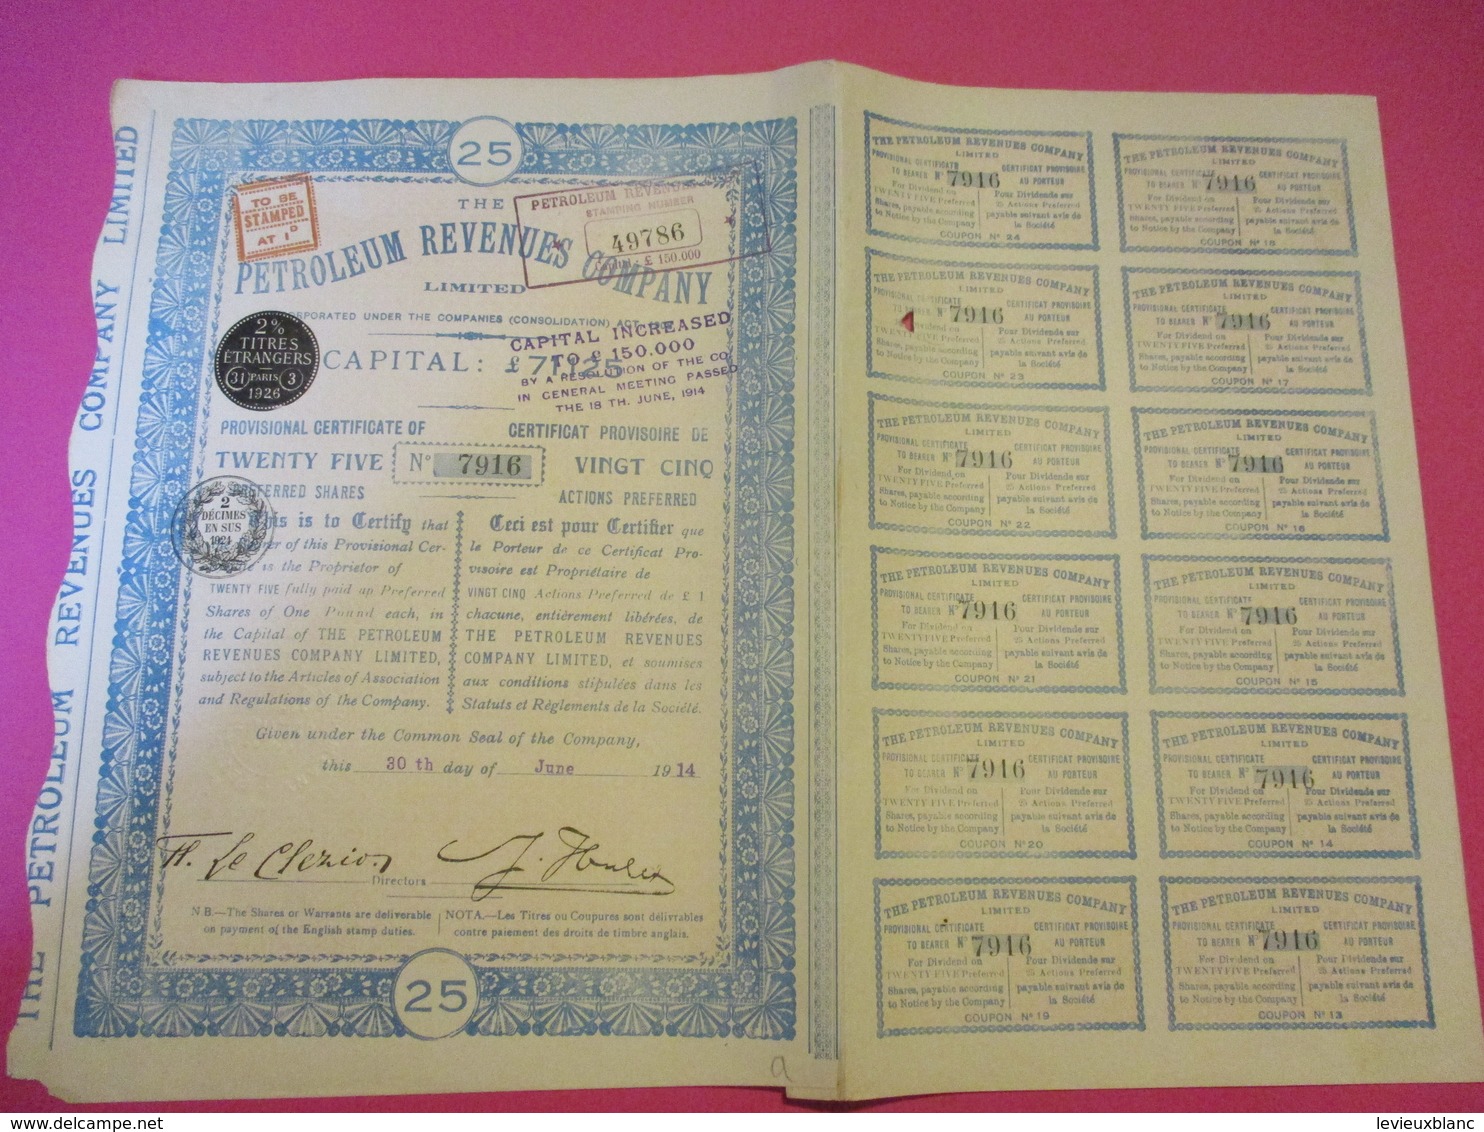 THE PETROLEUM REVENUES COMPANY LIMITED
25
TO BE
STAMPED
AT 1D
THE
PETROLEUM REVENUES COMPANY
LIMITED
PETROLEUM REVENUES
STAMPING NUMBER
49786
£ 150.000
INCORPORATED UNDER THE COMPANIES (CONSOLIDATION) ACT
CAPITAL: £ 71125
CAPITAL INCREASED
TO £ 150.000
BY A RESOLUTION OF THE CO.
IN GENERAL MEETING PASSED
THE 18 TH. JUNE, 1914
2%
TITRES
ÉTRANGERS
31 PARIS 3
1926
PROVISIONAL CERTIFICATE OF
TWENTY FIVE
PREFERRED SHARES
No 7916
CERTIFICAT PROVISOIRE DE
VINGT CINQ
ACTIONS PREFERRED
2
DÉCIMES
EN SUS
1921
This is to Certify that
of this Provisional Cer-
is the Proprietor of
TWENTY FIVE fully paid up Preferred
Shares of One Pound each, in
the Capital of THE PETROLEUM
REVENUES COMPANY LIMITED,
subject to the Articles of Association
and Regulations of the Company.
Ceci est pour Certifier que
le Porteur de ce Certificat Pro-
visoire est Propriétaire de
VINGT CINQ Actions Preferred de £ 1
chacune, entièrement libérées, de
THE PETROLEUM REVENUES
COMPANY LIMITED, et soumises
aux conditions stipulées dans les
Statuts et Règlements de la Société.
Given under the Common Seal of the Company,
this 30 th day of June 1914
H. Le Clezio
Directors
N B.—The Shares or Warrants are deliverable
on payment of the English stamp duties.
NOTA.—Les Titres ou Coupures sont délivrables
contre paiement des droits de timbre anglais.
25
THE PETROLEUM REVENUES COMPANY
LIMITED
PROVISIONAL CERTIFICATE
TO BEARER No 7916
For Dividend on
TWENTY FIVE Preferred
Shares, payable according
to Notice by the Company
CERTIFICAT PROVISOIRE
AU PORTEUR
Pour Dividende sur
25 Actions Preferred
payable suivant avis de
la Société
COUPON No 24
THE PETROLEUM REVENUES COMPANY
LIMITED
PROVISIONAL CERTIFICATE
TO BEARER No 7916
For Dividend on
TWENTY FIVE Preferred
Shares, payable according
to Notice by the Company
CERTIFICAT PROVISOIRE
AU PORTEUR
Pour Dividende sur
25 Actions Preferred
payable suivant avis de
la Société
COUPON No 18
THE PETROLEUM REVENUES COMPANY
LIMITED
PROVISIONAL CERTIFICATE
TO BEARER No 7916
Dividend on
TWENTY FIVE Preferred
Shares, payable according
to Notice by the Company
CERTIFICAT PROVISOIRE
AU PORTEUR
Pour Dividende sur
25 Actions Preferred
payable suivant avis de
la Société
COUPON No 23
THE PETROLEUM REVENUES COMPANY
LIMITED
PROVISIONAL CERTIFICATE
TO BEARER No 7916
For Dividend on
TWENTY FIVE Preferred
Shares, payable according
to Notice by the Company
CERTIFICAT PROVISOIRE
AU PORTEUR
Pour Dividende sur
25 Actions Preferred
payable suivant avis de
la Société
COUPON No 17
THE PETROLEUM REVENUES COMPANY
LIMITED
PROVISIONAL CERTIFICATE
TO BEARER No 7916
For Dividend on
TWENTY FIVE Preferred
Shares, payable according
to Notice by the Company
CERTIFICAT PROVISOIRE
AU PORTEUR
Pour Dividende sur
25 Actions Preferred
payable suivant avis de
la Société
COUPON No 22
THE PETROLEUM REVENUES COMPANY
LIMITED
PROVISIONAL CERTIFICATE
TO BEARER No 7916
For Dividend on
TWENTY FIVE Preferred
Shares, payable according
to Notice by the Company
CERTIFICAT PROVISOIRE
AU PORTEUR
Pour Dividende sur
25 Actions Preferred
payable suivant avis de
la Société
COUPON No 16
THE PETROLEUM REVENUES COMPANY
LIMITED
PROVISIONAL CERTIFICATE
TO BEARER No 7916
For Dividend on
TWENTY FIVE Preferred
Shares, payable according
to Notice by the Company
CERTIFICAT PROVISOIRE
AU PORTEUR
Pour Dividende sur
25 Actions Preferred
payable suivant avis de
la Société
COUPON No 21
THE PETROLEUM REVENUES COMPANY
LIMITED
PROVISIONAL CERTIFICATE
TO BEARER No 7916
For Dividend on
TWENTY FIVE Preferred
Shares, payable according
to Notice by the Company
CERTIFICAT PROVISOIRE
AU PORTEUR
Pour Dividende sur
25 Actions Preferred
payable suivant avis de
la Société
COUPON No 15
THE PETROLEUM REVENUES COMPANY
LIMITED
PROVISIONAL CERTIFICATE
TO BEARER No 7916
For Dividend on
TWENTY FIVE Preferred
Shares, payable according
to Notice by the Company
CERTIFICAT PROVISOIRE
AU PORTEUR
Pour Dividende sur
25 Actions Preferred
payable suivant avis de
la Société
COUPON No 20
THE PETROLEUM REVENUES COMPANY
LIMITED
PROVISIONAL CERTIFICATE
TO BEARER No 7916
For Dividend on
TWENTY FIVE Preferred
Shares, payable according
to Notice by the Company
CERTIFICAT PROVISOIRE
AU PORTEUR
Pour Dividende sur
25 Actions Preferred
payable suivant avis de
la Société
COUPON No 14
THE PETROLEUM REVENUES COMPANY
LIMITED
PROVISIONAL CERTIFICATE
TO BEARER No 7916
For Dividend on
TWENTY FIVE Preferred
Shares, payable according
to Notice by the Company
CERTIFICAT PROVISOIRE
AU PORTEUR
Pour Dividende sur
25 Actions Preferred
payable suivant avis de
la Société
COUPON No 19
THE PETROLEUM REVENUES COMPANY
LIMITED
PROVISIONAL CERTIFICATE
TO BEARER No 7916
For Dividend on
TWENTY FIVE Preferred
Shares, payable according
to Notice by the Company
CERTIFICAT PROVISOIRE
AU PORTEUR
Pour Dividende sur
25 Actions Preferred
payable suivant avis de
la Société
COUPON No 13
a
levieuxblanc